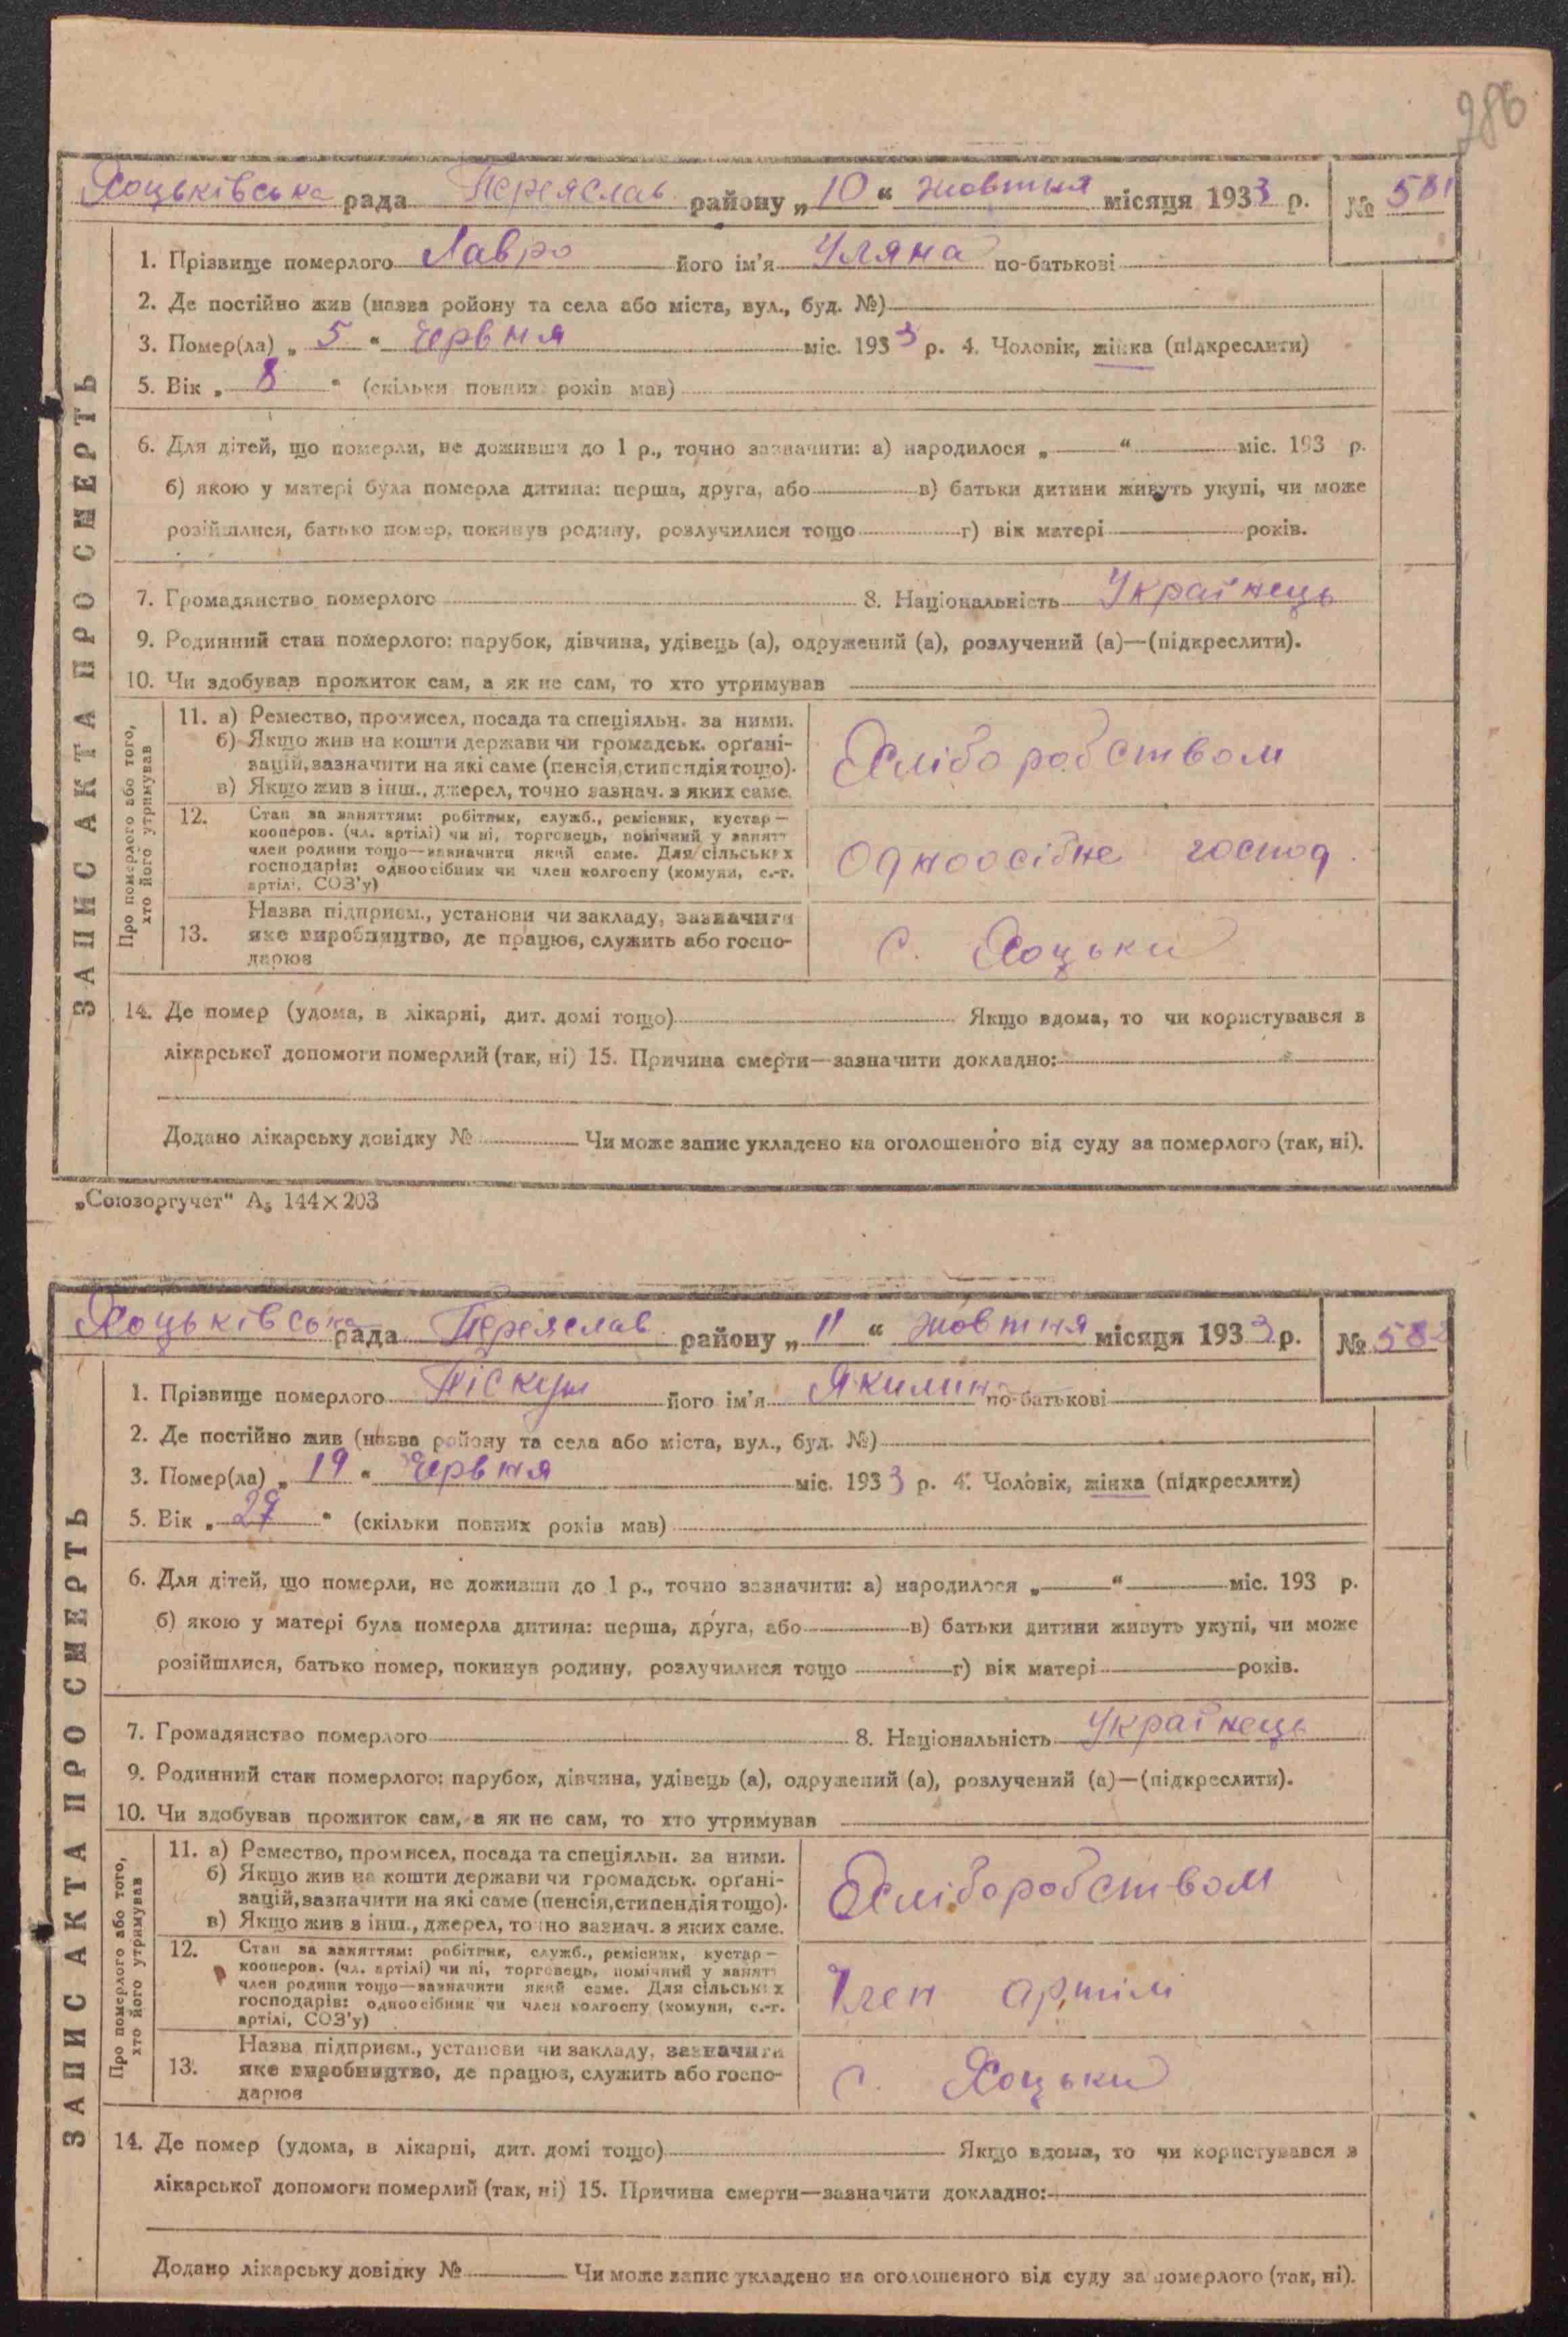 286
Хоцьківська рада Переяслав району „10“ жовтня місяця 1933 р. № 581
ЗАПИС АКТА ПРО СМЕРТЬ
1. Прізвище померлого Лавро його ім'я Уляна по-батькові
2. Де постійно жив (назва ройону та села або міста, вул., буд. №)
3. Помер(ла) „5“ Червня міс. 1933 р. 4. Чоловік, жінка (підкреслити)
5. Вік „8“ (скільки повних років мав)
6. Для дітей, що померли, не доживши до 1 р., точно зазначити: а) народилося „ “ міс. 193 р.
б) якою у матері була померла дитина: перша, друга, або в) батьки дитини живуть укупі, чи може
розійшлися, батько помер, покинув родину, розлучилися тощо г) вік матері років.
7. Громадянство померлого 8. Національність Українець
9. Родинний стан померлого: парубок, дівчина, удівець (а), одружений (а), розлучений (а)—(підкреслити).
10. Чи здобував прожиток сам, а як не сам, то хто утримував
Про померлого або того, хто його утримував
11. а) Ремество, промисел, посада та спеціяльн. за ними.
б) Якщо жив на кошти держави чи громадськ. орґані-
зацій, зазначити на які саме (пенсія, стипендія тощо).
в) Якщо жив з інш., джерел, точно зазнач. з яких саме.
Хліборобством
12. Стан за заняттям: робітник, служб., ремісник, кустар—
кооперов. (чл. артілі) чи ні, торговець, помічний у занятт
член родини тощо—зазначити який саме. Для сільських
господарів: одноосібник чи член колгоспу (комуни, с.-г.
артілі, СОЗ'у)
Одноосібне господ.
13. Назва підприєм., установи чи закладу, зазначити
яке виробництво, де працює, служить або госпо-
дарює
с. Хоцьки
14. Де помер (удома, в лікарні, дит. домі тощо) Якщо вдома, то чи користувався з
лікарської допомоги померлий (так, ні) 15. Причина смерти—зазначити докладно:
Додано лікарську довідку № Чи може запис укладено на оголошеного від суду за померлого (так, ні).
„Союзоргучет“ А5 144×203
Хоцьківська рада Переяслав району „11“ жовтня місяця 1933 р. № 582
ЗАПИС АКТА ПРО СМЕРТЬ
1. Прізвище померлого Піскун його ім'я Якилина по-батькові
2. Де постійно жив (назва ройону та села або міста, вул., буд. №)
3. Помер(ла) „19“ Червня міс. 1933 р. 4. Чоловік, жінка (підкреслити)
5. Вік „ “ (скільки повних років мав)
6. Для дітей, що померли, не доживши до 1 р., точно зазначити: а) народилося „ “ міс. 193 р.
б) якою у матері була померла дитина: перша, друга, або в) батьки дитини живуть укупі, чи може
розійшлися, батько помер, покинув родину, розлучилися тощо г) вік матері років.
7. Громадянство померлого 8. Національність Українець
9. Родинний стан померлого: парубок, дівчина, удівець (а), одружений (а), розлучений (а)—(підкреслити).
10. Чи здобував прожиток сам, а як не сам, то хто утримував
Про померлого або того, хто його утримував
11. а) Ремество, промисел, посада та спеціяльн. за ними.
б) Якщо жив на кошти держави чи громадськ. орґані-
зацій, зазначити на які саме (пенсія, стипендія тощо).
в) Якщо жив з інш., джерел, точно зазнач. з яких саме.
Хліборобством
12. Стан за заняттям: робітник, служб., ремісник, кустар—
кооперов. (чл. артілі) чи ні, торговець, помічний у занятт
член родини тощо—зазначити який саме. Для сільських
господарів: одноосібник чи член колгоспу (комуни, с.-г.
артілі, СОЗ'у)
Член артілі
13. Назва підприєм., установи чи закладу, зазначити
яке виробництво, де працює, служить або госпо-
дарює
с. Хоцьки
14. Де помер (удома, в лікарні, дит. домі тощо) Якщо вдома, то чи користувався з
лікарської допомоги померлий (так, ні) 15. Причина смерти—зазначити докладно:
Додано лікарську довідку № Чи може запис укладено на оголошеного від суду за померлого (так, ні).